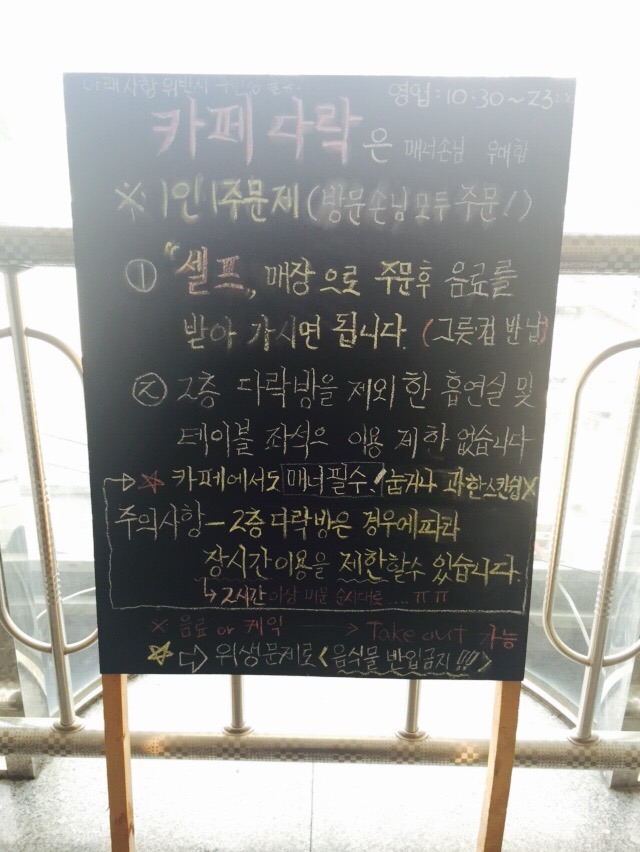 아래사항 위반시
영업:10:30~23:
카페 다락은 매너손님 우대함
※ 1인 1주문제 (방문손님 모두 주문!)
① "셀프, 매장으로 주문후 음료를
받아 가시면 됩니다. (그릇·컵 반납)
② 2층 다락방을 제외한 흡연실 및
테이블 좌석은 이용 제한 없습니다
→☆ 카페에서도 매너필수! 눕거나 과한스킨쉽X
주의사항 - 2층 다락방은 경우에따라
장시간이용을 제한할수 있습니다.
↳ 2시간이상 미분 순서대로....ㅠㅠ
× 음료 or 케익 → Take out 가능
☆⇨ 위생문제로 <음식물 반입금지!!!>